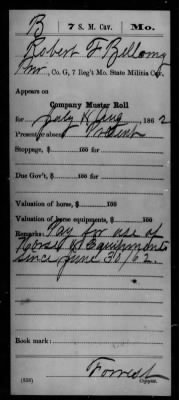 B 7 S. M. Cav. Mo.
Robert F Bellamy
Pvr., Co. G, 7 Reg't Mo. State Militia Cav.
Appears on
Company Muster Roll
for July & Aug, 1862
Present or absent Present
Stoppage, $ 100 for
Due Gov't, $ 100 for
Valuation of horse, $ 100
Valuation of horse equipments, $ 100
Remarks: Pay for use of
Horse & Equipments
since June 30/62.
Book mark:
Forrest
(858) Copyist.